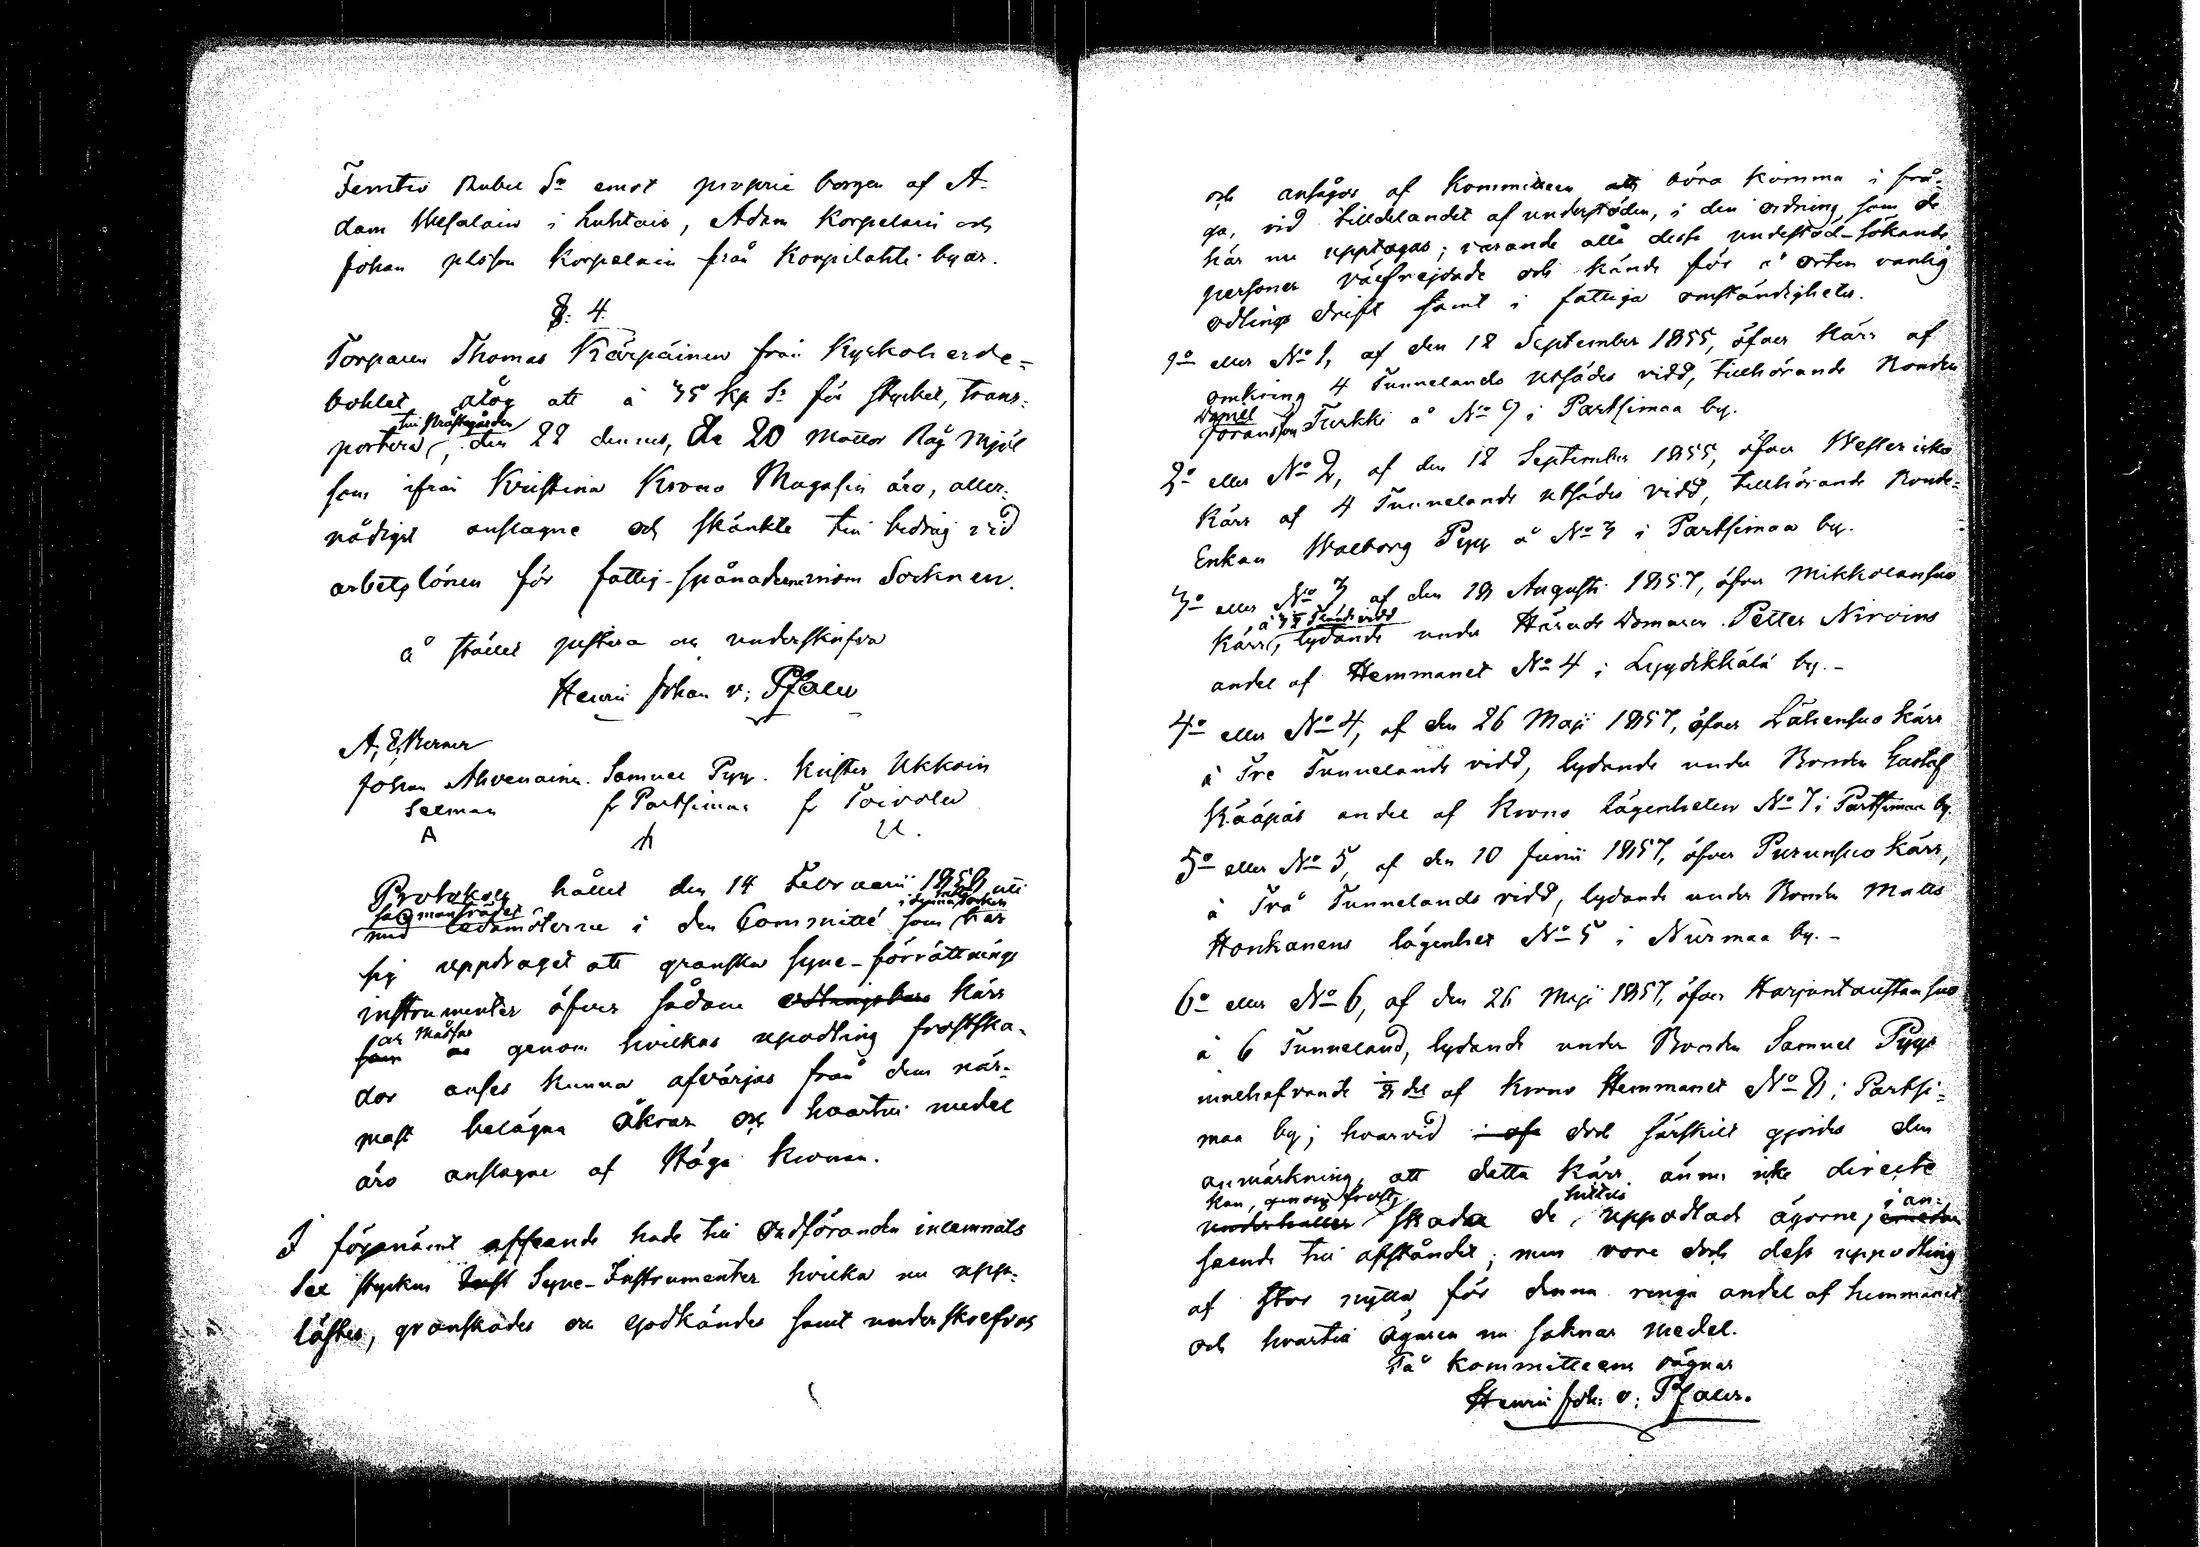 Femtio Rubel Sr emot proprie borgen af A-
dam Wesalain i Luhtais, Adam Korpelain och
Johan plsson Korpelain från Korpilahti byar.
§. 4.
Torparen Thomas Kärpäinen från Kyrkoherde-
bohlet åtog att à 35 Kp Sr för stycket, trans-
till Prästegården
portera, den 22 dennes, de 20 mattor Råg mjöl
som ifrån Kristina Krono Magasin äro, aller-
nådigst anslagne och skänkte till bidrag vid
arbetslönen för fattig-spånaderne inom Socknen.
å stället justera och underskrifva
Henric Johan v: Pfaler
A. E. Berner
Johan Ahvenainen. Samuel Pyy. Krister Ukkoin
Seeman fr Partsimaa fr Toivola
A U.
Protokoll hållit den 14 Februarii 1858 uti
Sockman rådet i denna Socken
med ledamöterne i den Committé som har
sig uppdraget att granska syne-förrättnings
instrumenter öfver sådane odlingsbara Kärr
och Måssar
som genom hvilkas upodling frostska-
dor anses kunna afvärjas från dem när-
mast belägna åkrar och hvartill medel
äro anslagne af Höga Kronan.
I förenämt afseende hade till Ordföranden inlemnats
Sex stycken Syne-Instrumenter hvilka nu upp-
lästes, granskades och godkändes samt underskrefvos
och ansågos af Kommitteen att böra komma i frå-
ga, vid tilldelandet af understöden, i den ordning som de
här nu upptagas; varande alla desse understöd-sökande
personer välfrejdade och kände för å orten vanlig
odlings drift samt i fattiga omständigheter.
1o eller No 1, af den 12 September 1855, öfver Kärr af
omkring 4 Tunnelands utsädes vidd, tillhörande Bonden
Daniel
Göransson Turkki å No 9 i Partsimaa by.
2o eller No 2, af den 12 September 1855, öfver Westerisko
Kärr af 4 Tunnelands utsädes vidd, tillhörande Bonde-
Enkan Walborg Pyy å No 3 i Partsimaa by.
3o eller No 3 af den 18 Augusti 1857, öfver Mikkolansuo
Kärr, lydande under Härads Domaren Petter Niroins
andel af Hemmanet No 4 i Lyydikkälä by.-
4o eller No 4, af den 26 Maji 1857, öfver Lähensuo Kärr
à Tre Tunnelands vidd, lydande under Bonden Gustaf
Kääpäs andel af Krono lägenheten No 7 i Partsimaa by.
5o eller No 5, af den 10 Junii 1857, öfver Purunsuo Kärr,
à Två Tunnelands vidd, lydande under Bonden Matts
Honkanens lägenhet No 5 i Nurmaa by.-
6o eller No 6, af den 26 Maji 1857, öfver Harjuntaustansuo
à 6 Tunneland, lydande under Bonden Samuel Pyys
innehafvande del af Krono Hemmanet No 8 i Partsi-
maa by; hvarvid dock särskilt gjordes den
anmärkning, att detta Kärr änne icke directe
kan, genom frost, hittills
underhåller skada de uppodlade ägorne, i an-
seende till afståndet; men vore dock dess uppodling
af stor nytta för denna ringa andel af hemmanet
och hvartill ägaren nu saknar medel.
På Kommitteens vägnar
Henric Joh: v: Pfaler.